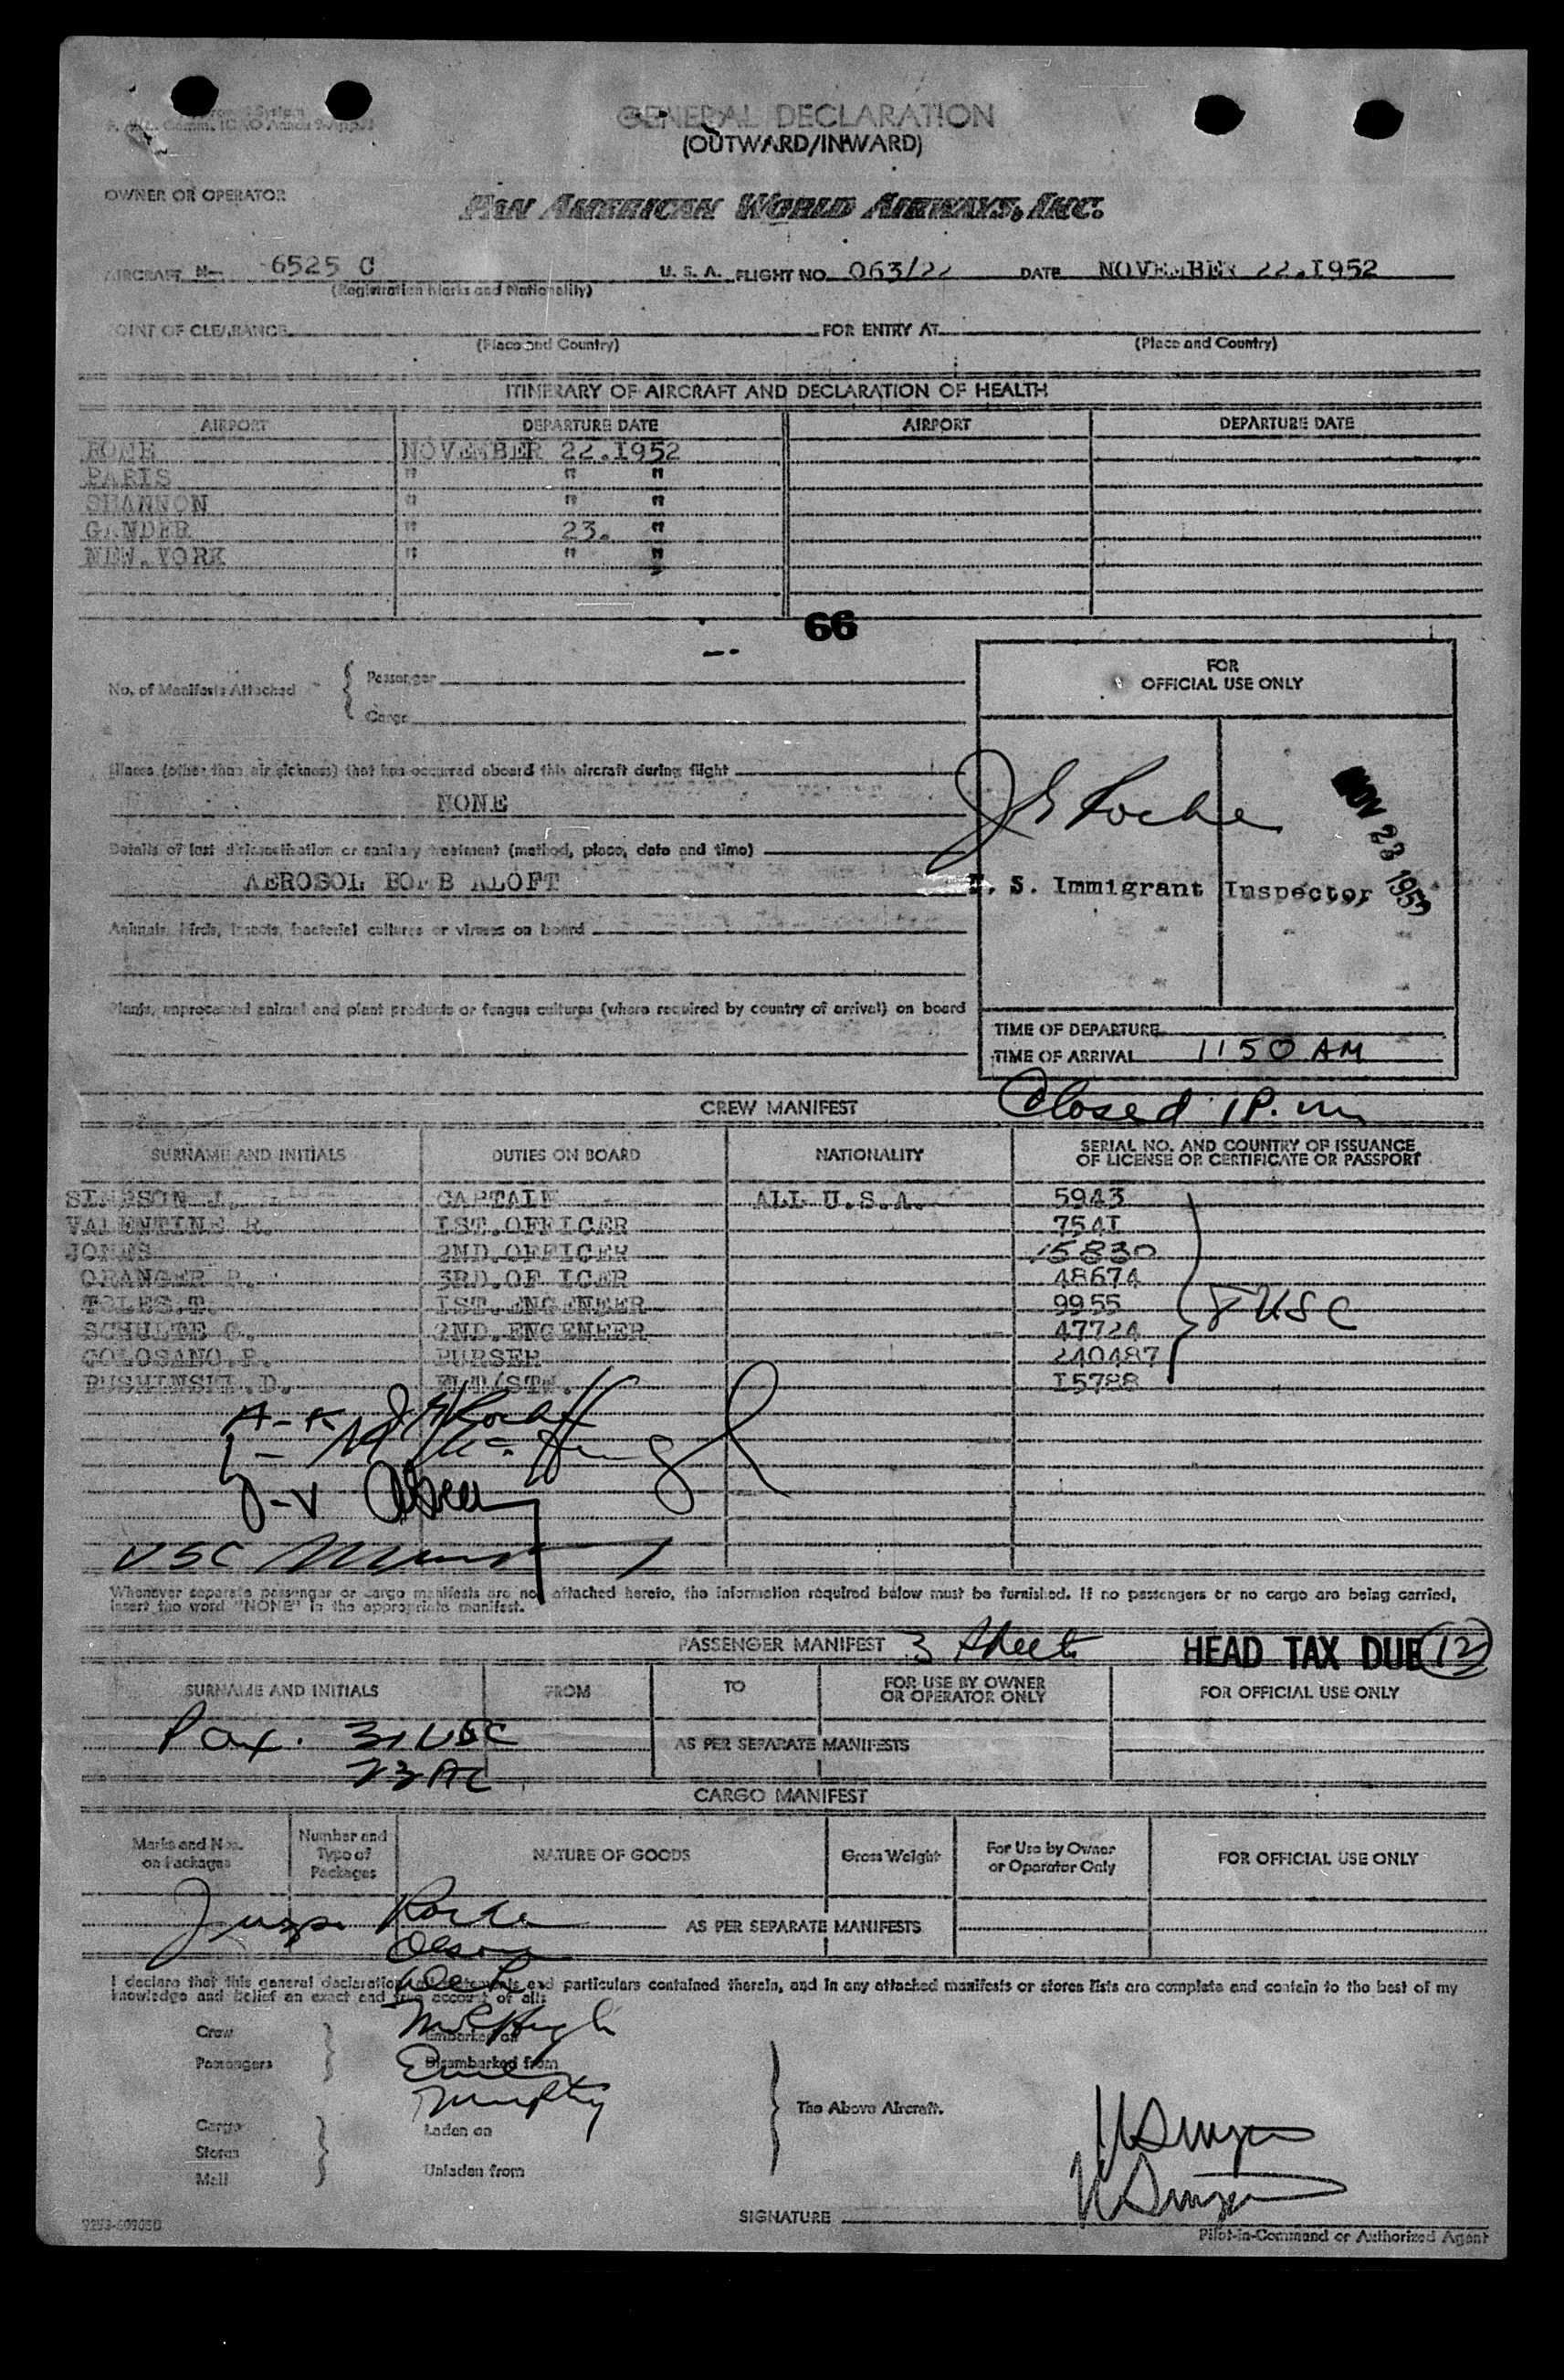 GENERAL DECLARATION
(OUTWARD/INWARD)
OWNER OR OPERATOR PAN AMERICAN WORLD AIRWAYS, INC.
AIRCRAFT N— 6525 C U. S. A. FLIGHT NO. 063/22 DATE NOVEMBER 22.I952
(Registration Marks and Nationality)
POINT OF CLEARANCE FOR ENTRY AT
(Place and Country) (Place and Country)
ITINERARY OF AIRCRAFT AND DECLARATION OF HEALTH
AIRPORT DEPARTURE DATE AIRPORT DEPARTURE DATE
ROME NOVEMBER 22.I952
PARIS " " "
SHANNON " " "
GANDER " 23. "
NEW.YORK " " "
66
FOR
OFFICIAL USE ONLY
No. of Manifests Attached { Passenger
Cargo
Illness (other than air sickness) that has occurred aboard this aircraft during flight
NONE
Details of last disinsectization or sanitary treatment (method, place, date and time)
AEROSOL BOMB ALOFT
Animals, birds, insects, bacterial cultures or viruses on board
Plants, unprocessed animal and plant products or fungus cultures (where required by country of arrival) on board
J E Roche
NOV 23 1952
U. S. Immigrant Inspector
TIME OF DEPARTURE
TIME OF ARRIVAL 1150 AM
Closed 1 P.m
CREW MANIFEST
SURNAME AND INITIALS DUTIES ON BOARD NATIONALITY SERIAL NO. AND COUNTRY OF ISSUANCE
OF LICENSE OR CERTIFICATE OR PASSPORT
SIMPSON J. CAPTAIN ALL U.S.A. 5943
VALENTINE R. IST.OFFICER 754I
JONES 2ND.OFFICER 15830
GRANGER R. 3RD.OF ICER 48674
TOLES.T. IST.ENGENEER 9955
SCHULTE G. 2ND.ENGENEER 47724
COLOSANO.P. PURSER 240487
BUSHINSKI.D. FLT/STW. I5788
8 USC
A-K J E Roche
L- McHugh
J-V Olsen
USC
Whenever separate passenger or cargo manifests are not attached hereto, the information required below must be furnished. If no passengers or no cargo are being carried,
insert the word "NONE" in the appropriate manifest.
PASSENGER MANIFEST 3 sheets HEAD TAX DUE 12
SURNAME AND INITIALS FROM TO FOR USE BY OWNER
OR OPERATOR ONLY FOR OFFICIAL USE ONLY
Pax. 31 USC
AS PER SEPARATE MANIFESTS
23 AL
CARGO MANIFEST
Marks and Nos.
on Packages Number and
Type of
Packages NATURE OF GOODS Gross Weight For Use by Owner
or Operator Only FOR OFFICIAL USE ONLY
Insps. Roche
AS PER SEPARATE MANIFESTS
Olsen
I declare that this general declaration all statements and particulars contained therein, and in any attached manifests or stores lists are complete and contain to the best of my
knowledge and belief an exact and true account of all:
McHugh
Crew Embarked on
Passengers Disembarked from
Murphy
The Above Aircraft.
Cargo Laden on
Stores
Mail Unladen from
SIGNATURE
Pilot-in-Command or Authorized Agent